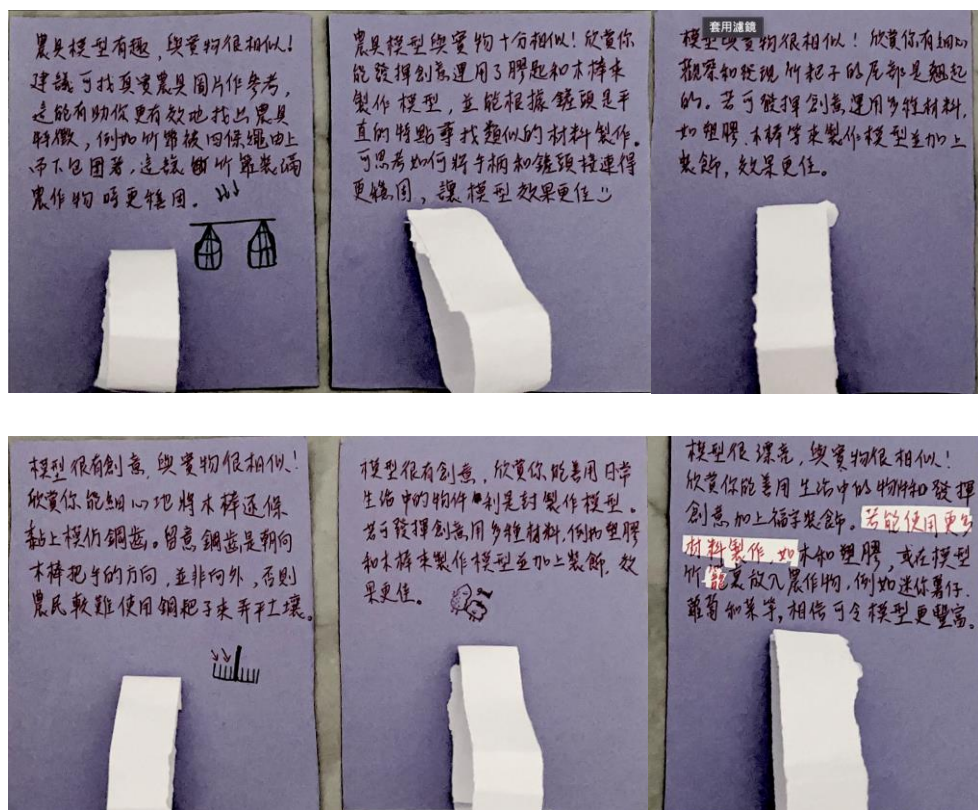 農具模型有趣，與實物很相似！
建議可找真實農具圖片作參考，
這能有助你更有效地找出農具
特徵，例如竹籮被四條繩由上
而下包圍著，這讓竹籮裝滿
農作物時更穩固。
農具模型與實物十分相似！欣賞你
能發揮創意運用了膠匙和木棒來
製作模型，並能根據鏟頭是平
直的特點尋找類似的材料製作。
可思考如何將手柄和鏟頭接連得
更穩固，讓模型效果更佳
套用濾鏡
模型與實物很相似！欣賞你有細心
觀察和發現竹耙子的尾部是翹起
的。若可發揮創意運用多種材料，
如塑膠、木棒等來製作模型並加上
裝飾，效果更佳。
模型很有創意，與實物很相似！
欣賞你能細心地將木棒逐條
黏上模仿鋼齒。留意鋼齒是朝向
木棒把手的方向，並非向外，否則
農民較難使用鋼耙子來弄平土壤。
模型很有創意，欣賞你能善用日常
生活中的物件利是封製作模型。
若可發揮創意用多種材料，例如塑膠
和木棒來製作模型並加上裝飾，效
果更佳。
模型很漂亮，與實物很相似！
欣賞你能善用生活中的物件和發揮
創意加上福字裝飾。若能使用更多
材料製作，如木和塑膠，或在模型
竹籠裏放入農作物，例如迷你薯仔、
蘿蔔和菜等，相信可令模型更豐富。